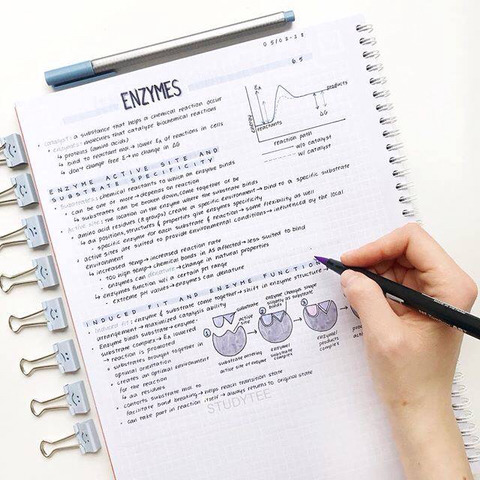 05/03-22
6.5
ENZYMES
catalyst: a substance that helps a chemical reaction occur
enzymes: molecules that catalyze biochemical reactions
↳ proteins (amino acids)
↳ bind to reactant mol → lower EA of reactions in cells
↳ don't change free E → no change in ΔG
EA
products
ΔG
energy
reactants
reaction path
w/o catalyst
w/ catalyst
ENZYME ACTIVE SITE AND
SUBSTRATE SPECIFICITY
substrates: chemical reactants to which an enzyme binds
can be one or more → depends on reaction
↳ substrates can be broken down, come together to be
active site: the location on the enzyme where the substrate binds
amino acid residues (R groups) create a specific environment → bind to a specific substrate
↳ aa positions, structures & properties give enzymes specificity
specific enzyme for each substrate & reaction → some flexibility as well
active sites are suited to provide environmental conditions → influenced by the local
environment
↳ increased temp → increased reaction rate
too high temp → chemical bonds in AS affected → less suited to bind
enzymes can denature → change in natural properties
↳ enzymes function w/i a certain pH range
extreme pH values → enzymes can denature
INDUCED FIT AND ENZYME FUNCTION
induced fit: enzyme & substrate come together → shift in enzyme structure →
arrangement → maximizes catalysis ability
Enzyme binds substrate → enzyme-
substrate complex → EA lowered
→ reaction is promoted
substrates brought together in
optimal orientation
creates an optimal environment
for the reaction
↳ aa residues
contorts substrate mol to
facilitate bond breaking → helps reach transition state
can take part in reaction itself → always returns to original state
substrate
active site
enzyme
substrate entering
active site of enzyme
enzyme changes shape
slightly as substrate
binds
enzyme/
substrate
complex
enzyme/
products
complex
STUDYTEE